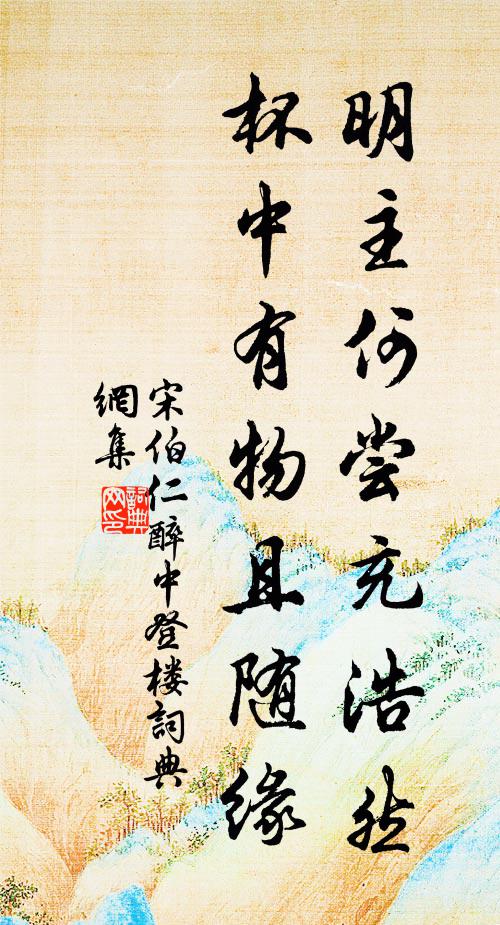 明主何尝充浩然
杯中有物且随缘
宋伯仁醉中登楼詞典
網集
詞典
网印